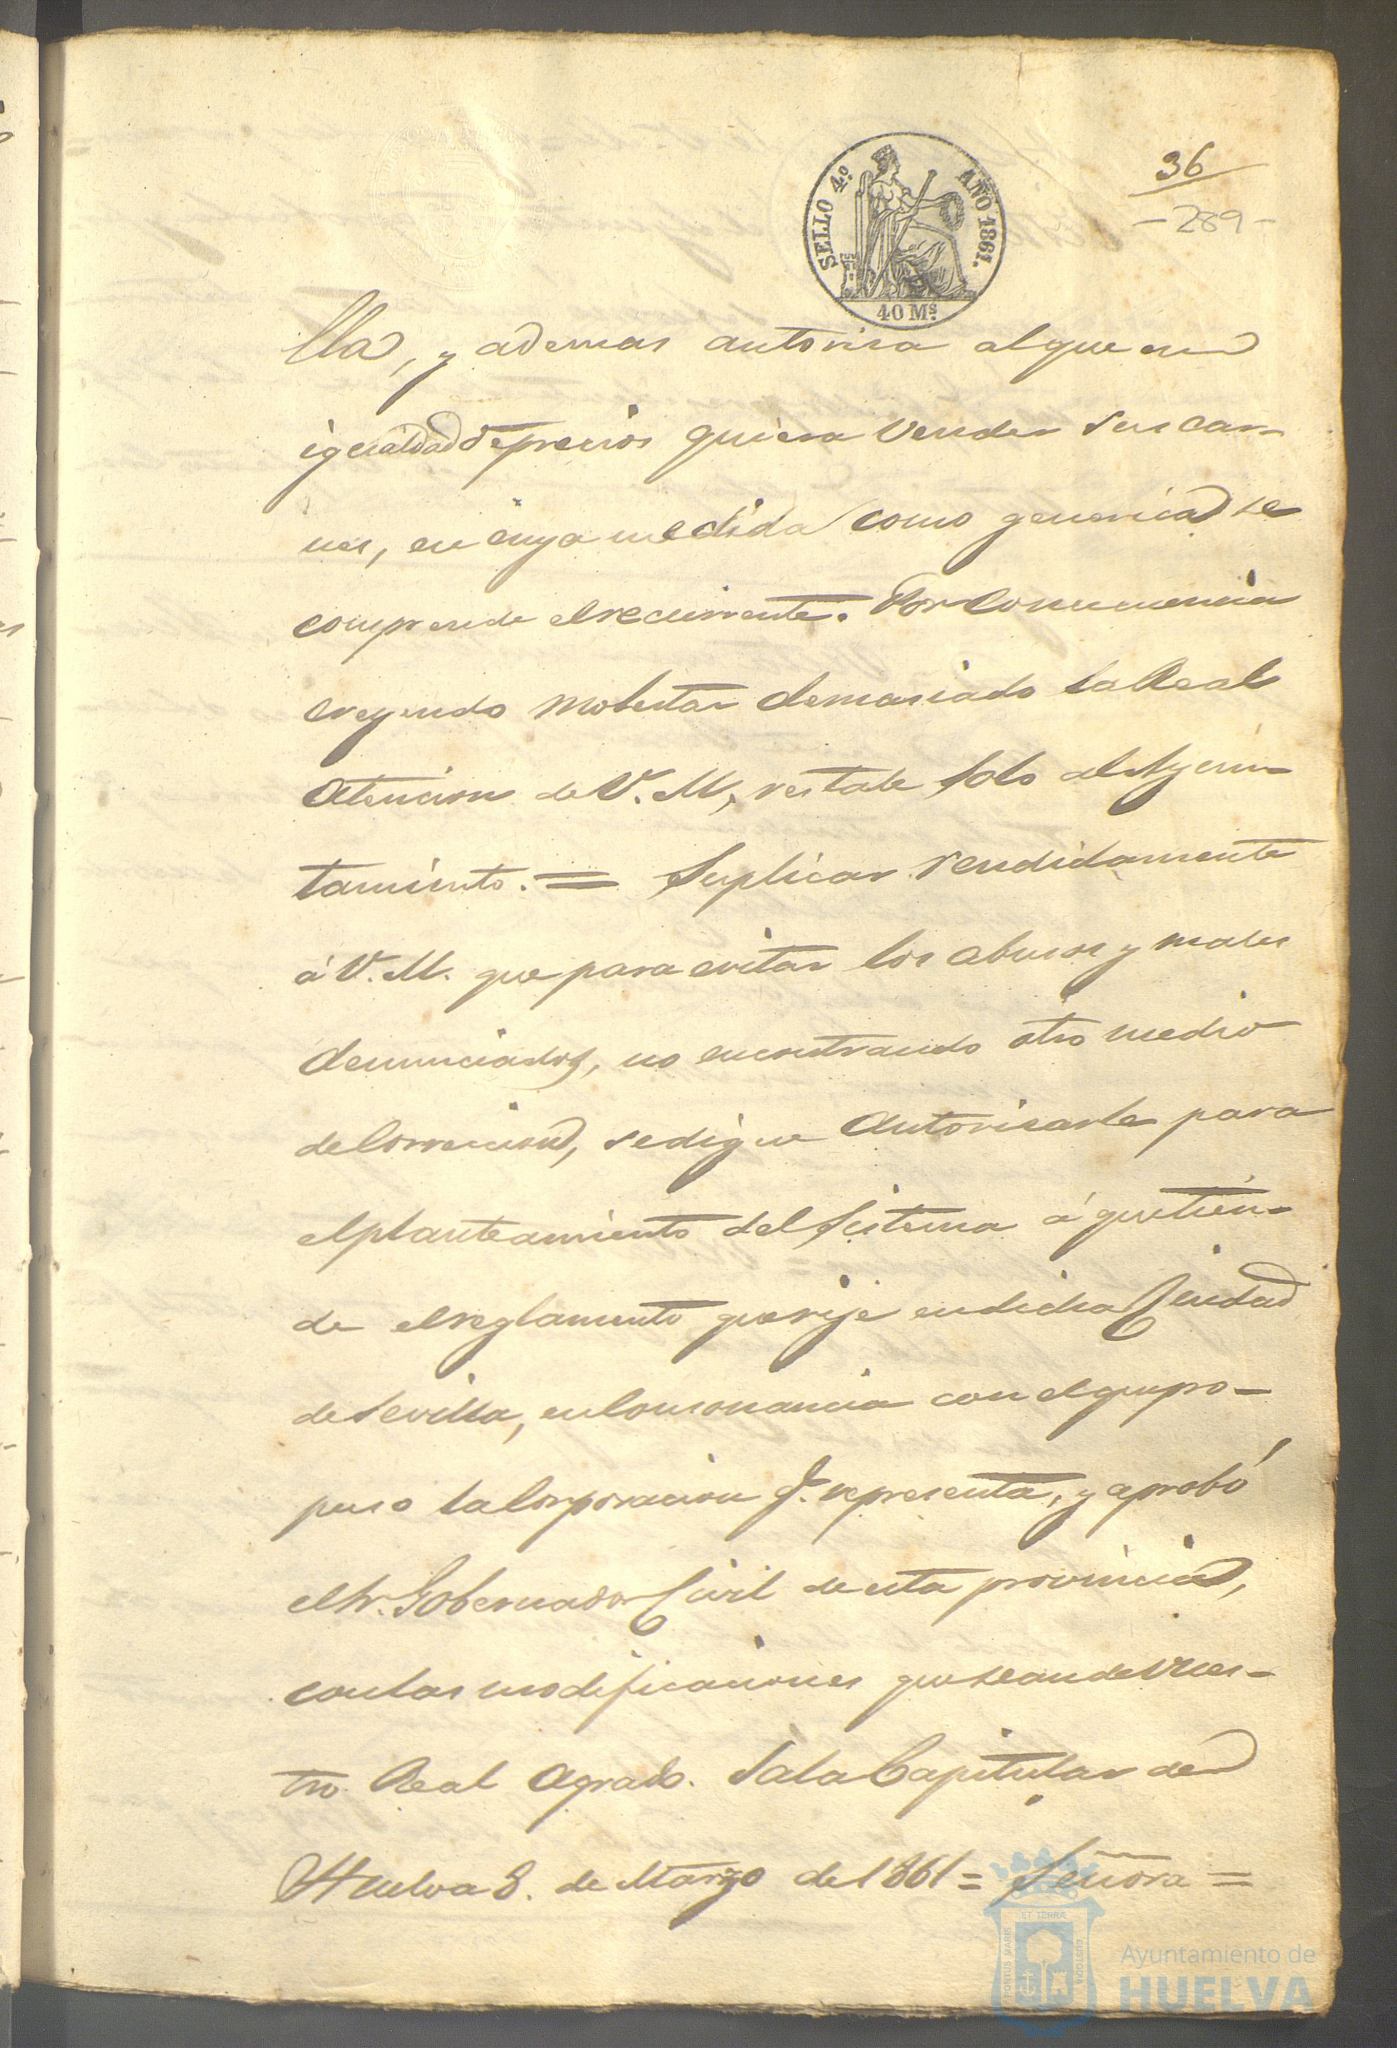 36
-289-
SELLO 4.º AÑO 1861.
40 Ms.
lla, y ademas autorisa al que en
igualdad de precios quiera vender sus car-
nes, en cuya medida como generica se
comprende el recurrente. Por consecuencia
creyendo molestar demasiado la Real
atencion de V. M., restale solo al Ayun-
tamiento. = Suplicar rendidamente
á V. M. que para evitar los abusos y males
denunciados, no encontrando otro medio
de correccion, se digne autorisarle para
el planteamiento del sistema á que tien-
de el reglamento que rije en dicha Ciudad
de Sevilla, en consonancia con el que pro-
puso la Corporacion q.e representa, y aprobó
el Sr. Gobernador Civil de esta provincia,
con las modificaciones que sean de Vues-
tro Real agrado. Sala Capitular de
Huelva 8. de Marzo de 1861 = Señora =
PORTUS MARIS ET TERRAE CUSTODIA
Ayuntamiento de
HUELVA